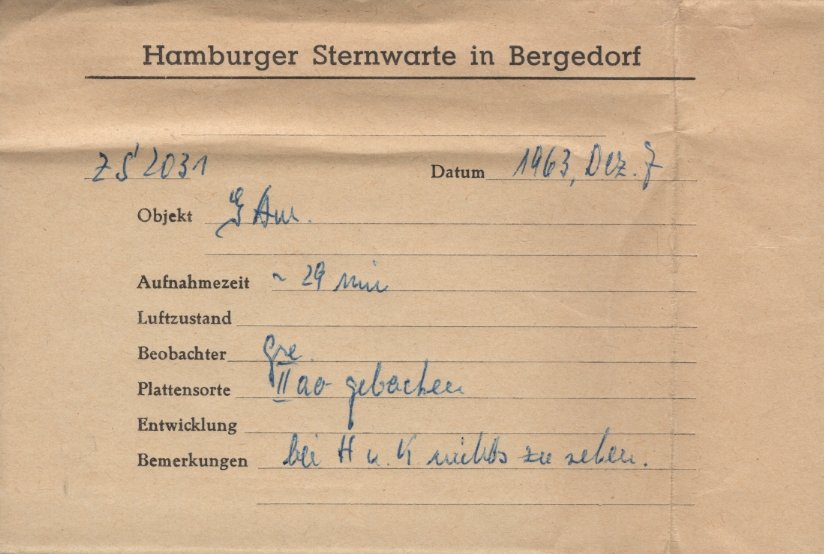 Hamburger Sternwarte in Bergedorf
ZS 2031 Datum 1963, Dez. 7
Objekt ζ Aur.
Aufnahmezeit ~ 29 min
Luftzustand
Beobachter Gre.
Plattensorte II ao gebacken
Entwicklung
Bemerkungen bei H u. K nichts zu sehen.